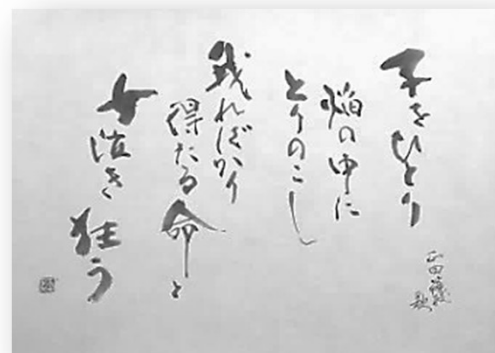 子をひとり
焔の中に
とりのこし
我ればかり
得たる命と
女泣き
狂う
正田篠枝
歌